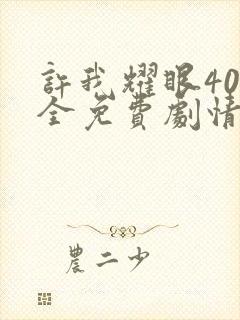 許我耀眼40
全免費劇情
農二少